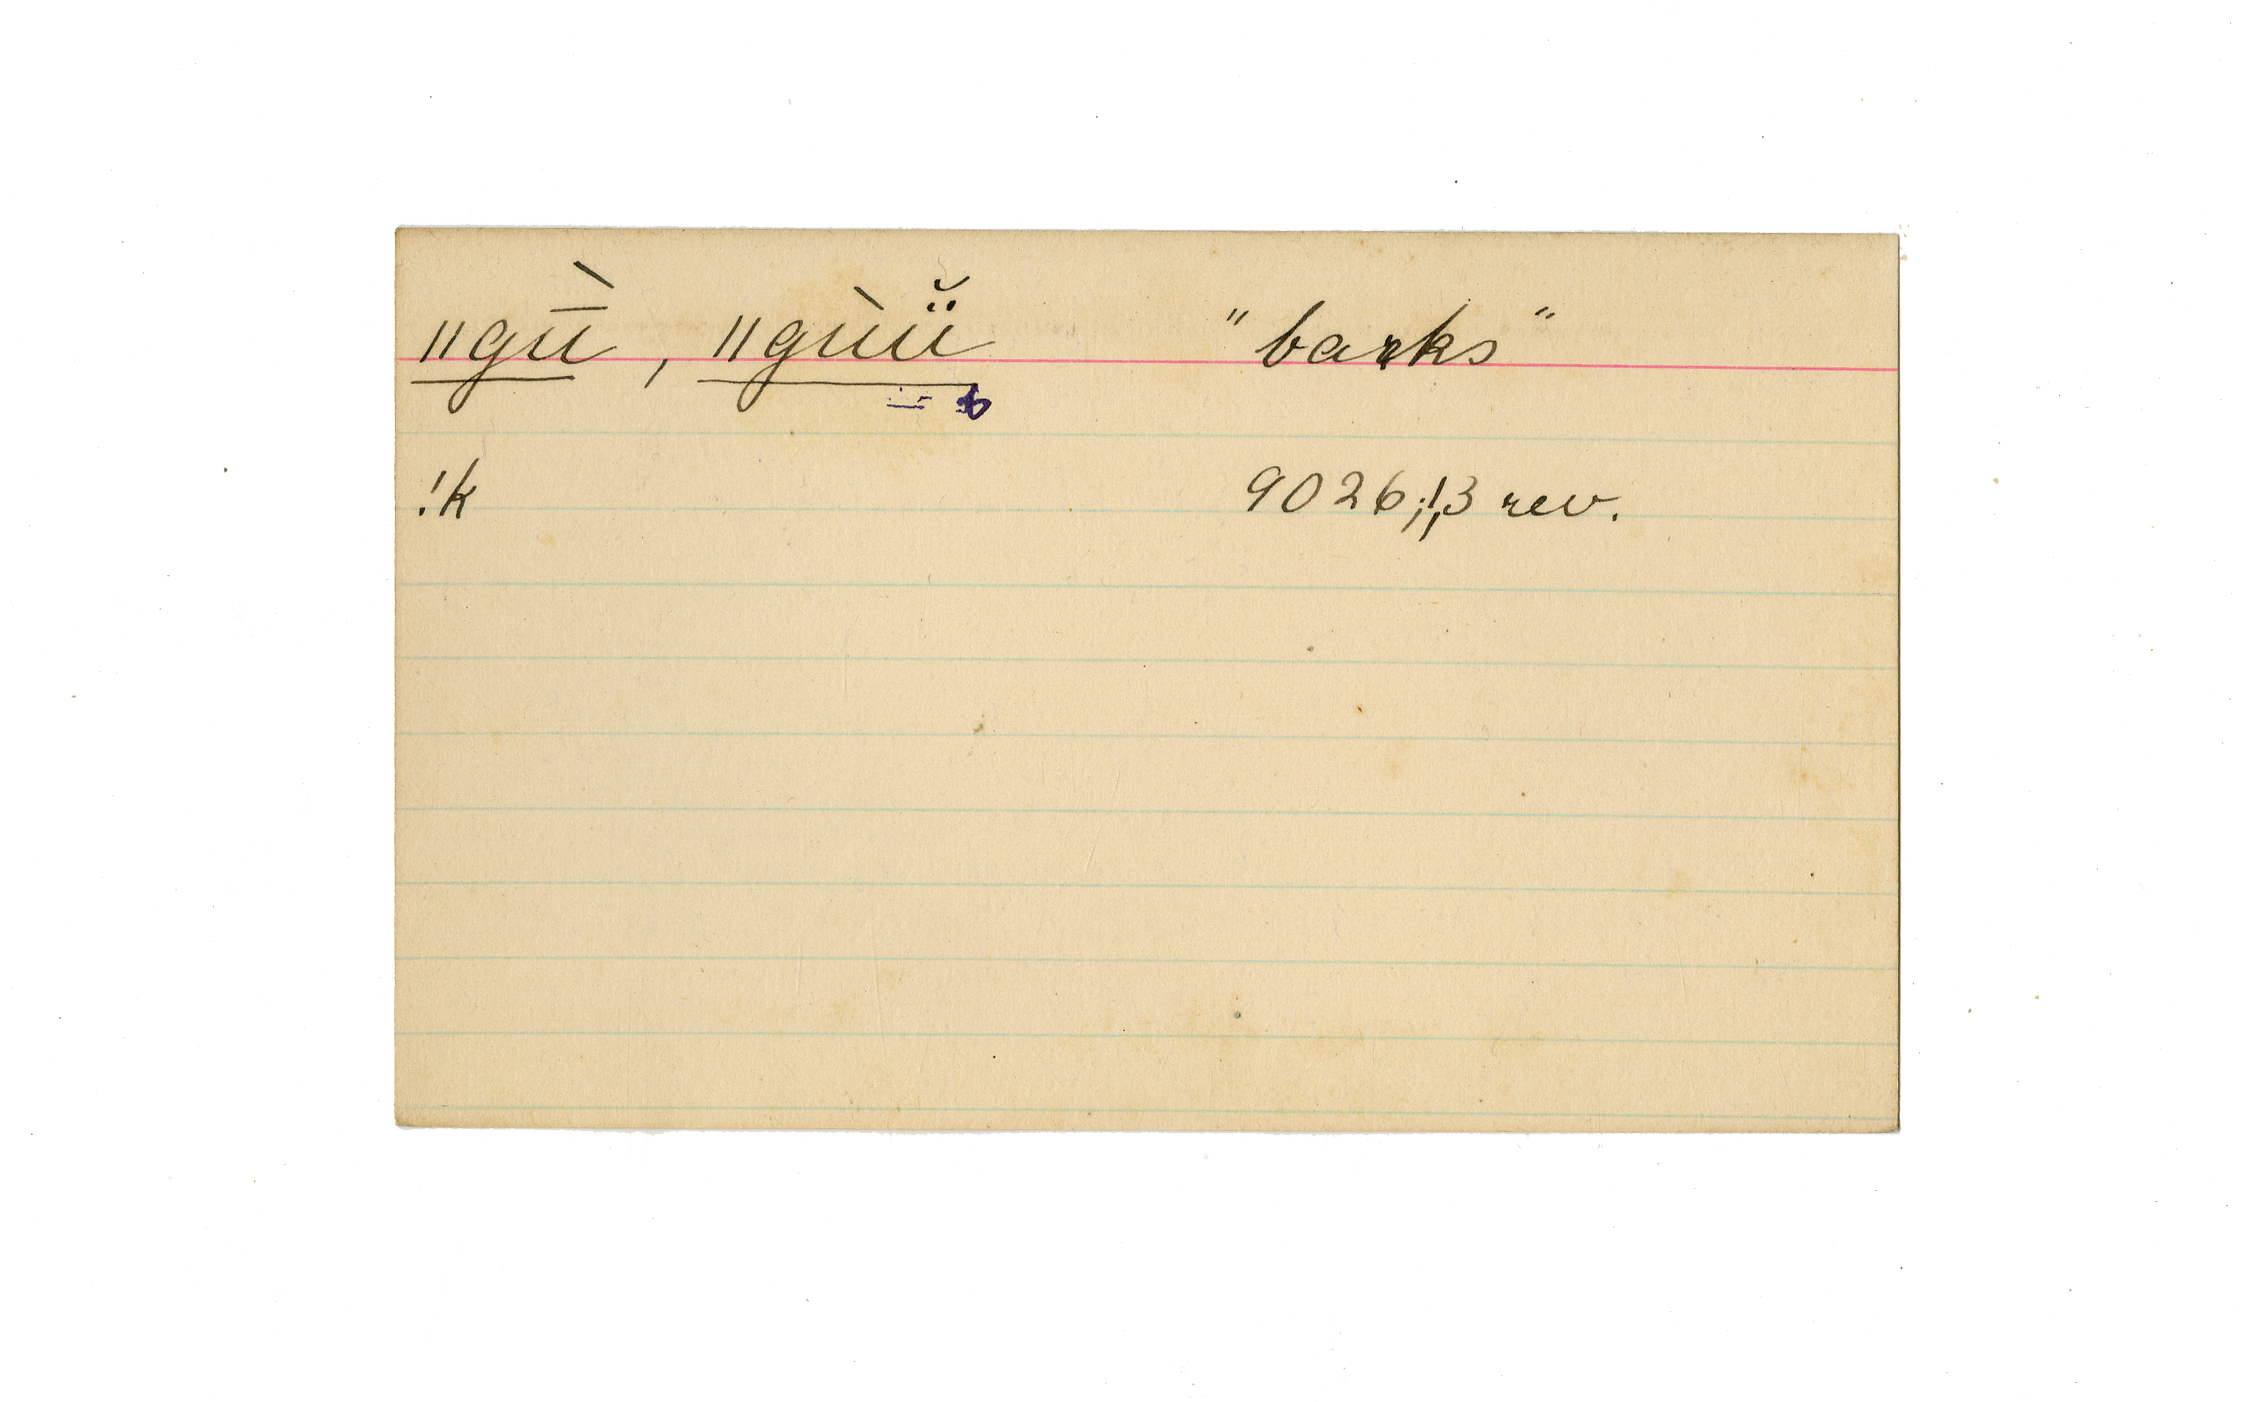 ǁgū̀, ǁgùü̆ "barks"
!k 9026,;1,3 rev.